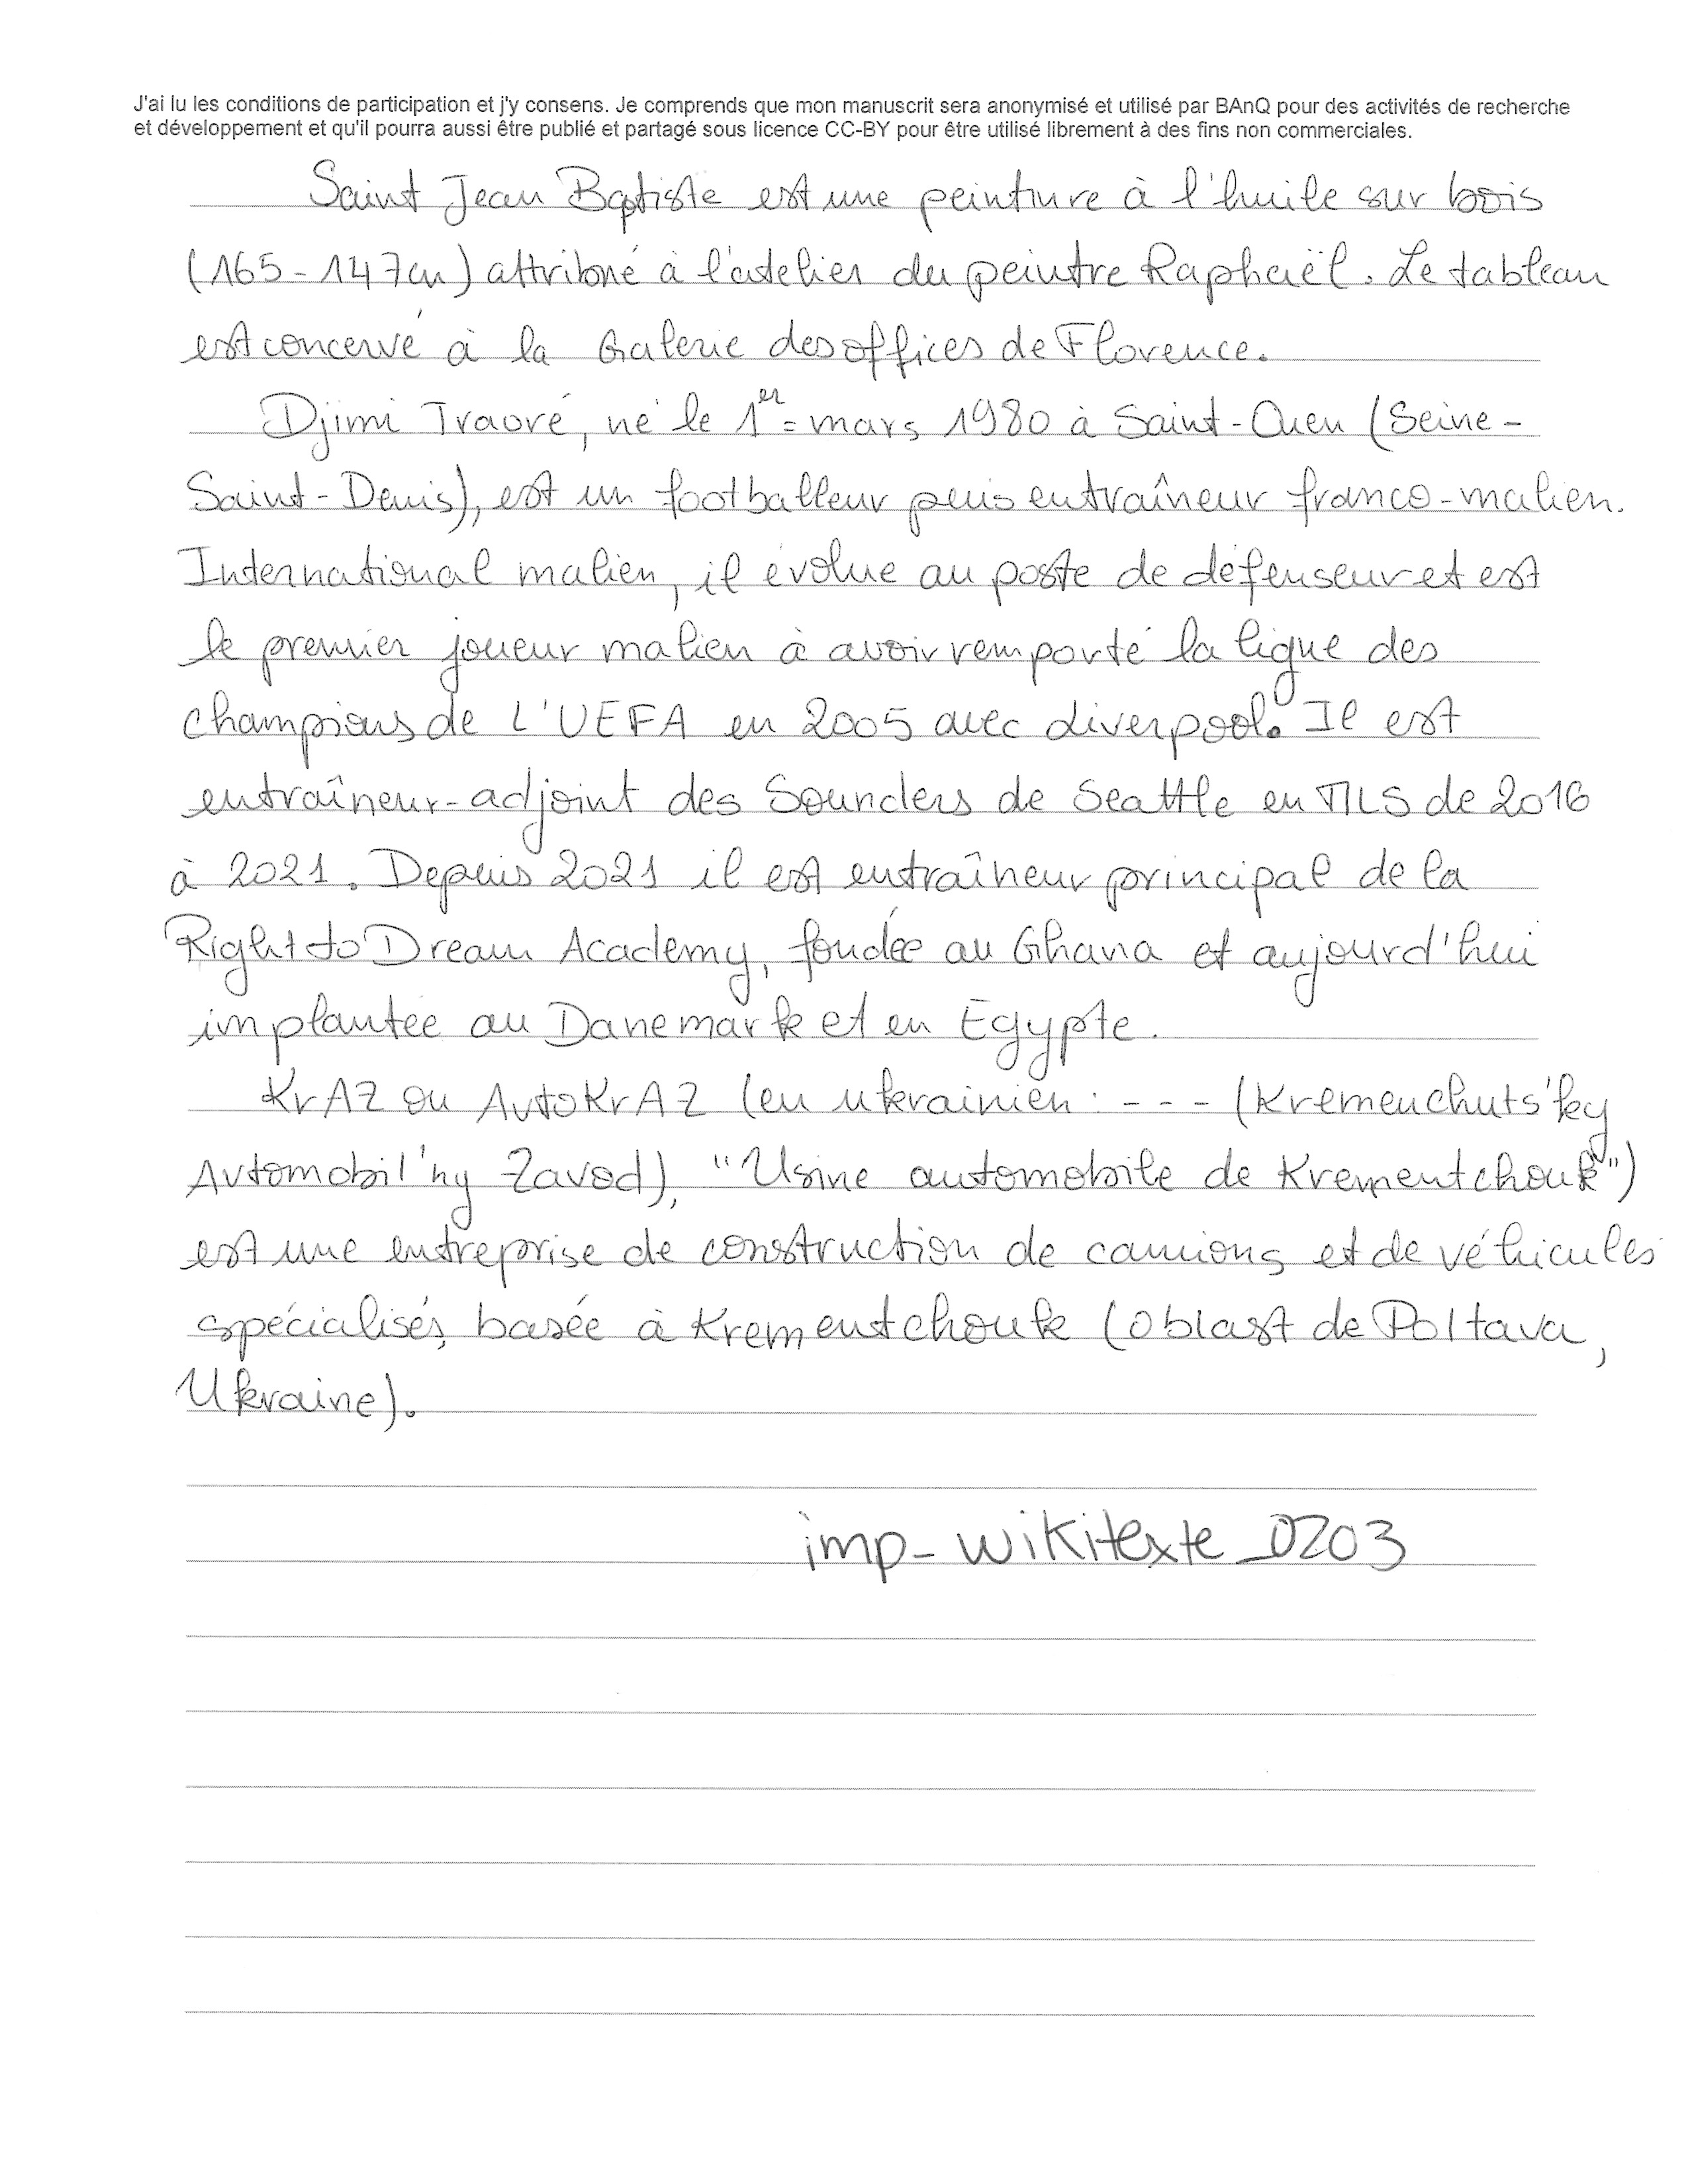 J'ai lu les conditions de participation et j'y consens. Je comprends que mon manuscrit sera anonymisé et utilisé par BAnQ pour des activités de recherche
et développement et qu'il pourra aussi être publié et partagé sous licence CC-BY pour être utilisé librement à des fins non commerciales.
Saint Jean Baptiste est une peinture à l'huile sur bois
(165-147cm) attribué à l'atelier du peintre Raphaël. Le tableau
est concervé à la Galerie des offices de Florence.
Djimi Traoré, né le 1er mars 1980 à Saint-Ouen (Seine-
Saint-Denis), est un footballeur puis entraîneur franco-malien.
International malien, il évolue au poste de défenseur et est
le premier joueur malien à avoir remporté la ligue des
champions de L'UEFA en 2005 avec Liverpool. Il est
entraîneur-adjoint des Sounders de Seattle en MLS de 2016
à 2021. Depuis 2021 il est entraîneur principal de la
Right to Dream Academy, fondée au Ghana et aujourd'hui
implantée au Danemark et en Egypte.
KrAZ ou AvtoKrAZ (en ukrainien : --- (Kremenchuts'ky
Avtomobil'ny Zavod), "Usine automobile de Krementchouk")
est une entreprise de construction de camions et de véhicules
spécialisés, basée à Krementchouk (oblast de Poltava,
Ukraine).
imp-wikitexte_0203